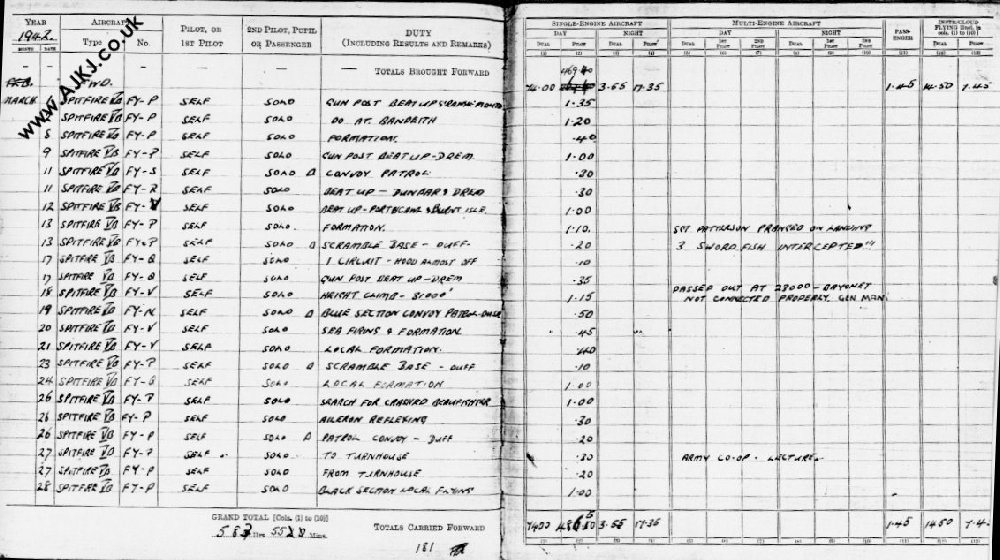 YEAR AIRCRAFT PILOT, OR 1ST PILOT 2ND PILOT, PUPIL OR PASSENGER DUTY (INCLUDING RESULTS AND REMARKS)
1942
MONTH DATE TYPE No.
TOTALS BROUGHT FORWARD
MARCH SPITFIRE VB FY-P SELF SOLO GUN POST BEAT UP
SPITFIRE VB FY-P SELF SOLO DO. AT.
5 SPITFIRE VB FY-P SELF SOLO FORMATION.
9 SPITFIRE VB FY-P SELF SOLO GUN POST BEAT UP-DREM
11 SPITFIRE VB FY-S SELF SOLO CONVOY PATROL
11 SPITFIRE VB SELF SOLO BEAT UP - DUNBAR & DREM
12 SPITFIRE VB SELF SOLO BEAT UP-
13 SPITFIRE VB SELF SOLO. FORMATION.
13 SPITFIRE VB FY-P SELF SOLO SCRAMBLE BASE - DUFF.
17 SPITFIRE VB SELF SOLO 1 CIRCUIT - HOOD ALMOST OFF
17 SPITFIRE VB SELF SOLO GUN POST BEAT UP-DREM
18 SPITFIRE VB FY-V SELF SOLO HEIGHT CLIMB - 31000'
19 SPITFIRE VB SELF SOLO BLUE SECTION CONVOY PATROL
20 SPITFIRE VB FY-V SELF SOLO SEA FIRING & FORMATION
21 SPITFIRE VB FY-V SELF SOLO LOCAL FORMATION.
23 SPITFIRE VB SELF SOLO SCRAMBLE BASE - DUFF
24 SPITFIRE VB SELF SOLO LOCAL FORMATION
26 SPITFIRE VB SELF SOLO SEARCH FOR CRASHED BEAUFIGHTER
26 SPITFIRE VB FY-P SELF SOLO AILERON REFLEXING
26 SPITFIRE VB FY-P SELF SOLO PATROL CONVOY - DUFF
27 SPITFIRE VB SELF SOLO TO TURNHOUSE
27 SPITFIRE VB FY-P SELF SOLO FROM TURNHOUSE
28 SPITFIRE VB FY-P SELF SOLO BLACK SECTION LOCAL FLYING
GRAND TOTAL [Cols. (1) to (10)]
Hrs. Mins.
TOTALS CARRIED FORWARD
181
SINGLE-ENGINE AIRCRAFT MULTI-ENGINE AIRCRAFT PASSENGER INSTR/CLOUD FLYING [Incl. in cols. (1) to (10)]
DAY NIGHT DAY NIGHT
DUAL PILOT DUAL PILOT DUAL 1ST PILOT 2ND PILOT DUAL 1ST PILOT 2ND PILOT DUAL PILOT
(1) (2) (3) (4) (5) (6) (7) (8) (9) (10) (11) (12) (13)
3.55 17.35 1.45 14.50 7.45
1.35
1.20
.40
1.00
.20
.30
1.00
1.10. SGT PATTERSON PRANGED ON LANDING
.20 3 SWORDFISH INTERCEPTED
.10
.35
PASSED OUT AT 28000 - BAYONET
1.15 NOT CONNECTED PROPERLY. GEN MAN.
.50
.45
.10
1.00
1.00
.30
.20
.30 ARMY CO-OP. LECTURE.
.20
1.00
3.55 17.35 1.45 14.50
(1) (2) (3) (4) (5) (6) (7) (8) (9) (10) (11) (12) (13)
www.AJKJ.co.uk